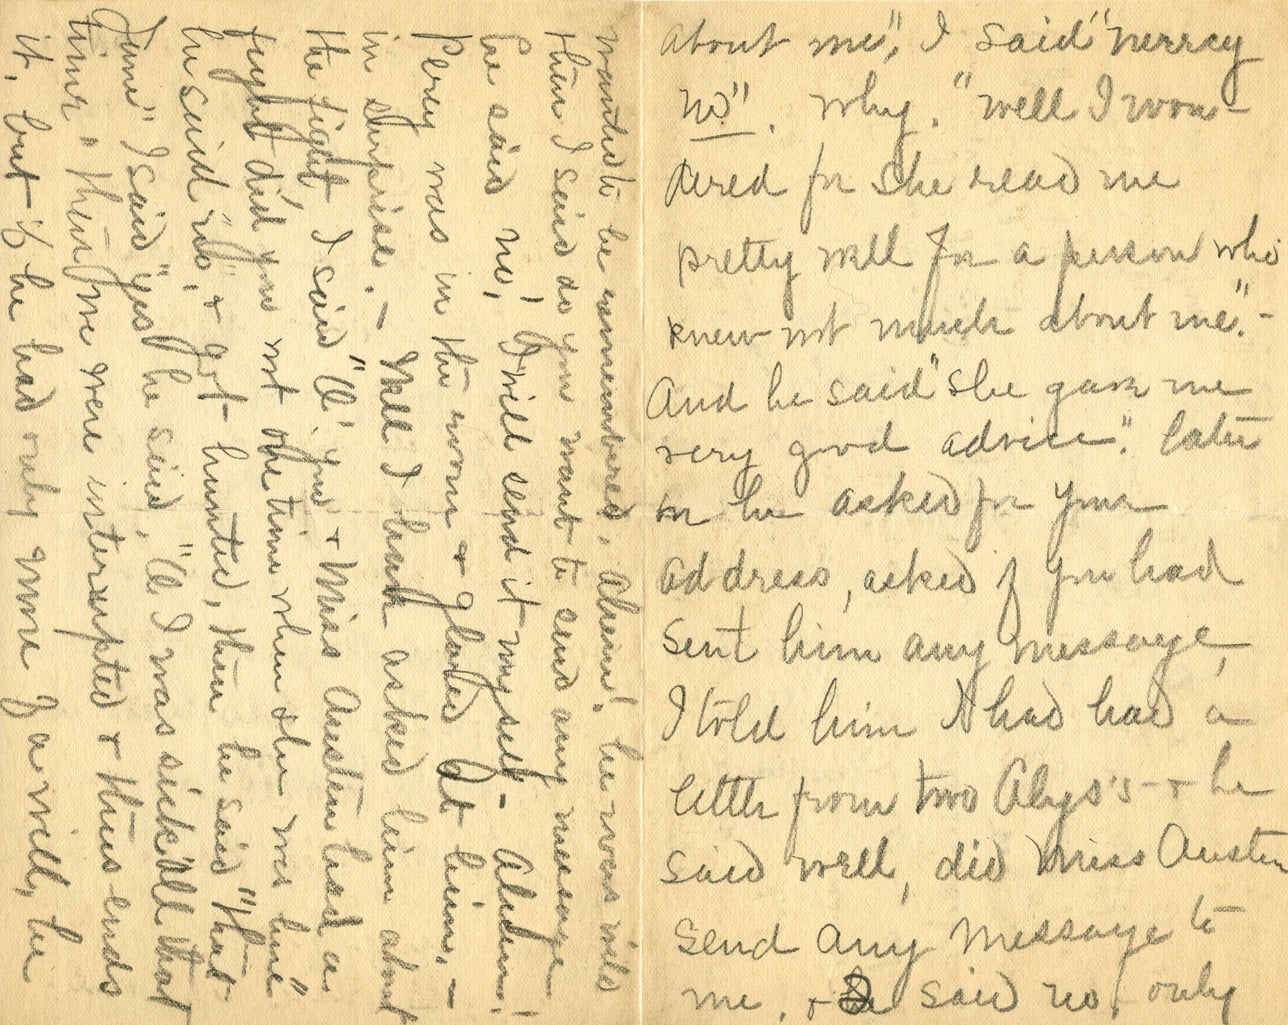 about me", I said "merrcy
no". Why. "well I won-
dered for she read me
pretty well for a person who
knew not much about me".-
And he said "she gave me
very good advice". Later
on he asked for your
address, asked if you had
sent him any message,
I told him I had had a
letter from two Alys's - & he
said well, did Miss Austen
send any message to
me, & I said no, only
wanted to be remembered, ahem! he was wild
then I said do you want to send any message -
he said no! I will send it myself - Ahem!
Percy was in the room & glared at him, -
in surprise. - Well I hark asked him about
the fight, I said "O' you & Miss Austen had a
fight did you not one time when she was here"
he said "no", & got hunted, then he said "that
time" I said "yes" he said, "O I was sick all that
time" then we were interrupted & thus ends
it, but if he had only mme of a will, he